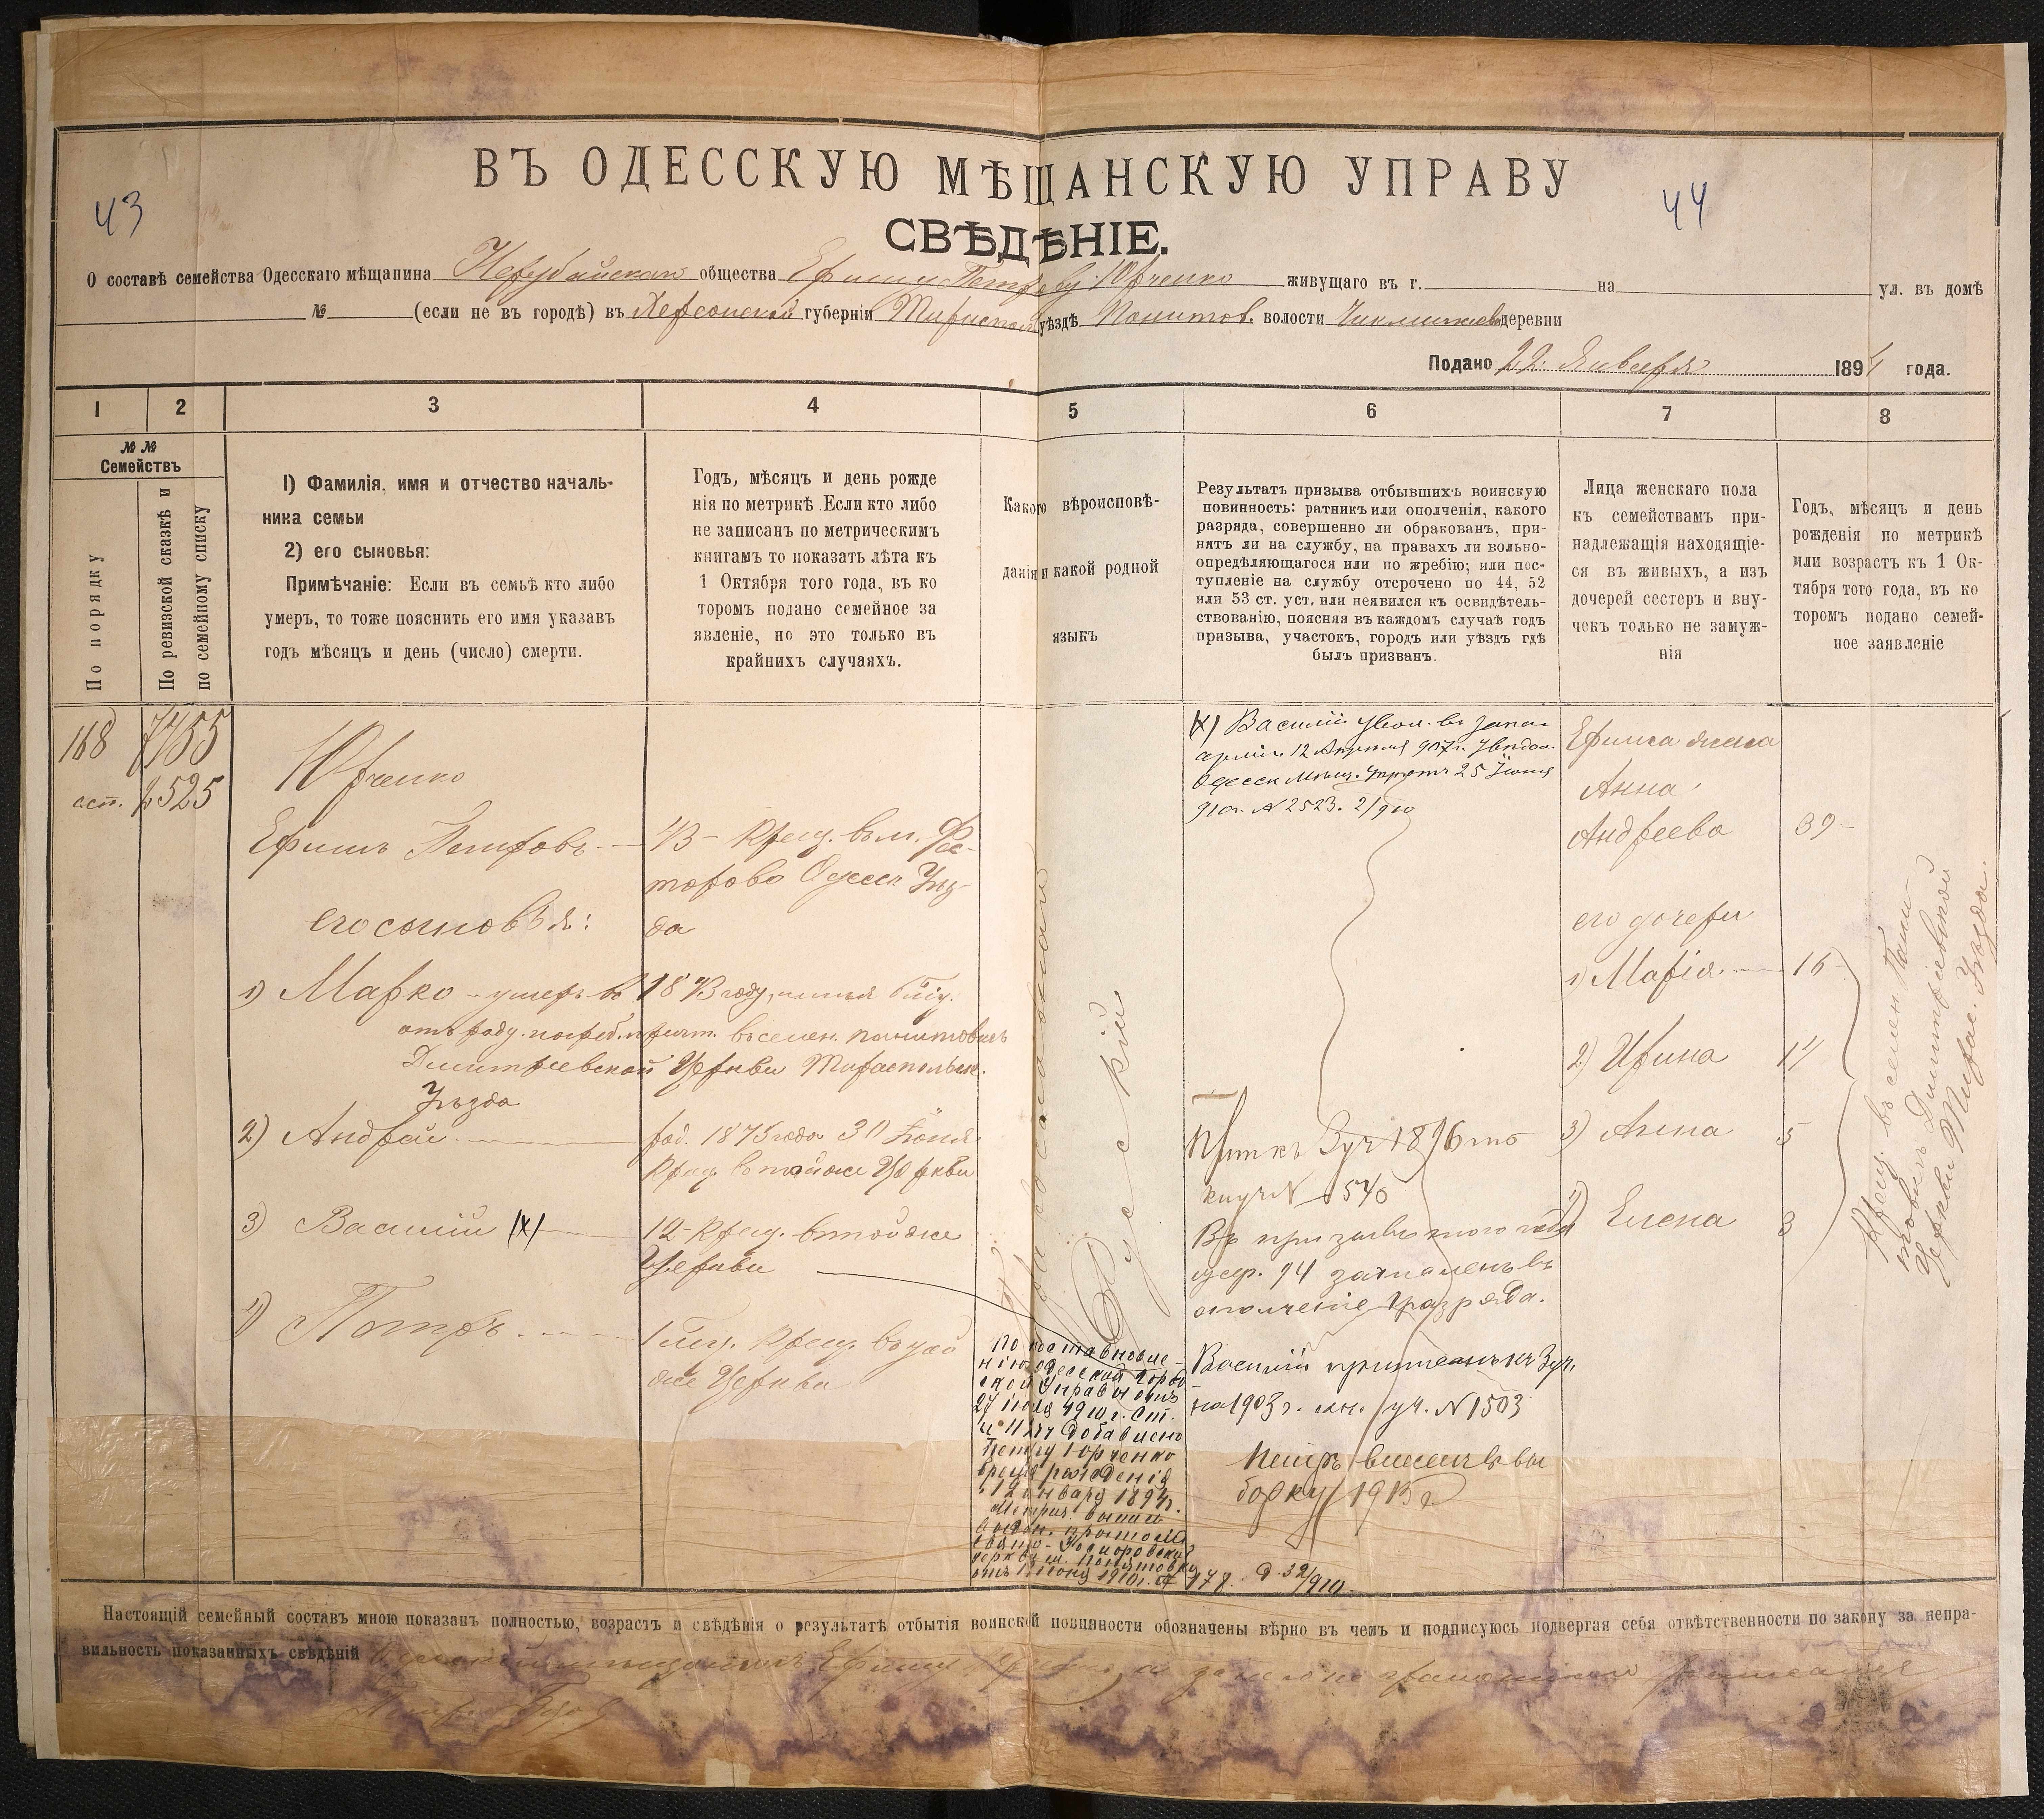 ВЪ ОДЕССКУЮ МѢЩАНСКУЮ УПРАВУ
43
44
СВѢДѢНІЕ.
О составѣ семейства Одесскаго мѣщанина Нерубайскаго общества Ефиму Петрову Юрченко живущаго въ г. на ул. въ домѣ
№ (если не въ городѣ) въ Херсонской губерніи Тираспол уѣздѣ Понятов. волости деревни
Подано 22 Января 1894 года.
1 2 3 4 5 6 7 8
№ № Семействъ
По порядку
По ревизской сказкѣ и
по семейному списку
1) Фамилія, имя и отчество началь-
ника семьи
2) его сыновья:
Примѣчаніе: Если въ семьѣ кто либо
умеръ, то тоже пояснить его имя указавъ
годъ мѣсяцъ и день (число) смерти.
Годъ, мѣсяцъ и день рожде
нія по метрикѣ. Если кто либо
не записанъ по метрическимъ
книгамъ то показать лѣта къ
1 Октября того года, въ ко
торомъ подано семейное за
явленіе, но это только въ
крайнихъ случаяхъ.
Какого вѣроисповѣ-
данія и какой родной
языкъ
Результатъ призыва отбывшихъ воинскую
повинность: ратникъ или ополченія, какого
разряда, совершенно ли обракованъ, при-
нятъ ли на службу, на правахъ ли вольно-
опредѣляющагося или по жребію; или пос-
тупленіе на службу отсрочено по 44, 52
или 53 ст. уст. или неявился къ освидѣтель-
ствованію, поясняя въ каждомъ случаѣ годъ
призыва, участокъ, городъ или уѣздъ гдѣ
былъ призванъ.
Лица женскаго пола
къ семействамъ при-
надлежащія находящіе-
ся въ живыхъ, а изъ
дочерей сестеръ и вну-
чекъ только не замуж-
нія
Годъ, мѣсяцъ и день
рожденія по метрикѣ
или возрастъ къ 1 Ок-
тября того года, въ ко
торомъ подано семей-
ное заявленіе
168
7455
2525
Юрченко
Ефимъ Петровъ
43 - Крещ. въ м. Фес-
торово Одесск Уѣз-
да
его сыновья:
1) Марко - умеръ въ 1873 году,
отъ роду. въ селен. Понятовкѣ
Дмитріевской Церкви Тираспольск.
Уѣзда
2) Андрей
род. 1875 года 30 Іюня
Крещ. въ той же Церкви
3) Василій (X)
12 - Крещ. въ той же
Церкви
4) Петръ
1 Крещ. въ той
же Церкви
Православнаго
Русскій
По постановле-
нію Одесской Город
ской Управы отъ
27 Іюля 1910 г. Ст.
добавлено
Петру Юрченко
время рожденія
12 января 1894 г.
церкви м. Понятовки
отъ Іюня 1910 г. № 177. Д. 32/910.
(X) Василій увол. въ запас
арміи 12 Апреля 907 г.
Одесск Мѣщ. отъ 25 Іюня
910 г. № 2523. 2/910
Прип къ 3 уч 1896 по
книгѣ № 1545
Въ призывъ того года
жер. 94 зачисленъ въ
ополченіе 1 разряда.
Василій приписанъ къ 3 уч.
на 1903 г. уч. № 1503
Петръ внесенъ въ вы
борку 1915 г
Ефима жена
Анна
Андреева
39
его дочери
1) Марія 16
2) Ирина 14
3) Анна 5
4) Елена 3
Крещ. въ селен. Поня-
товкѣ Димитріевской
Церкви Тирас. Уѣзда.
Настоящій семейный составъ мною показанъ полностью, возрастъ и свѣдѣнія о результатѣ отбытія воинской повинности обозначены вѣрно въ чемъ и подписуюсь подвергая себя отвѣтственности по закону за непра-
вильность показанныхъ свѣдѣній